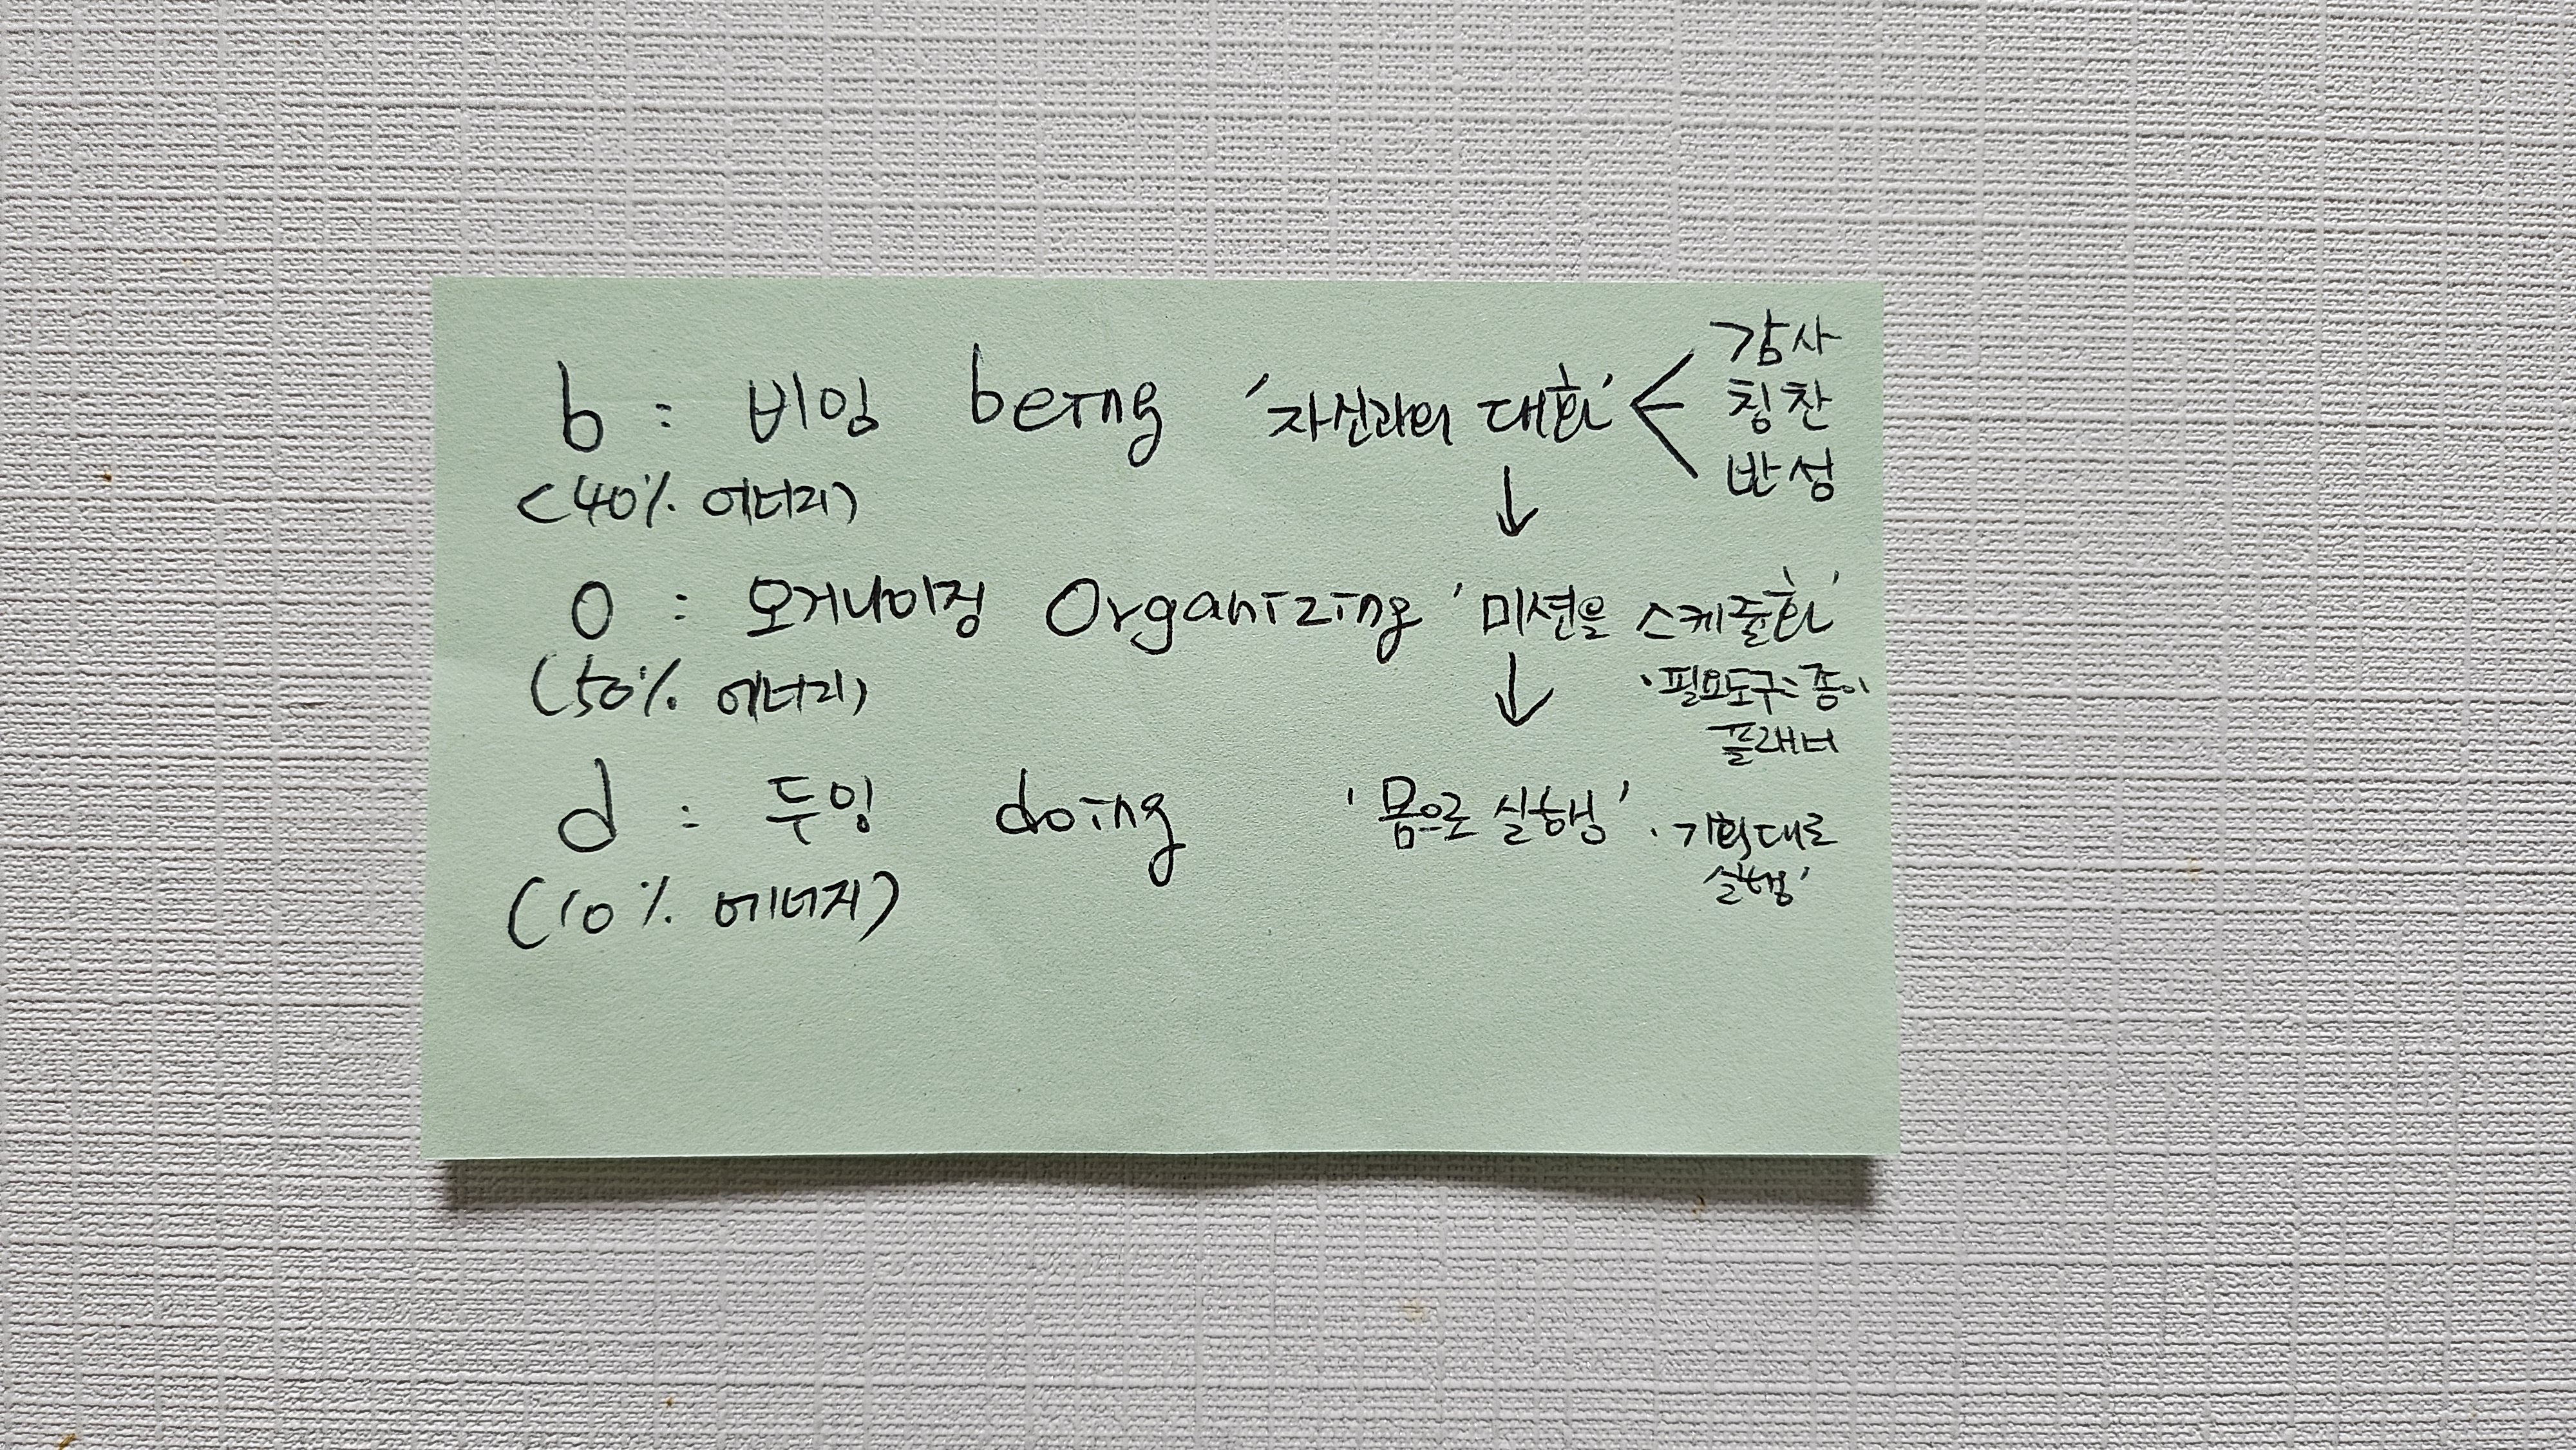 감사
b : 비잉 being '자신과의 대화' < 칭찬
반성
<40% 에너지)
↓
o : 오거나이징 Organizing '미션을 스케줄화'
(50% 에너지) ↓ · 필요도구: 종이
플래너
d : 두잉 doing '몸으로 실행' · 기획대로
실행'
(10% 에너지)